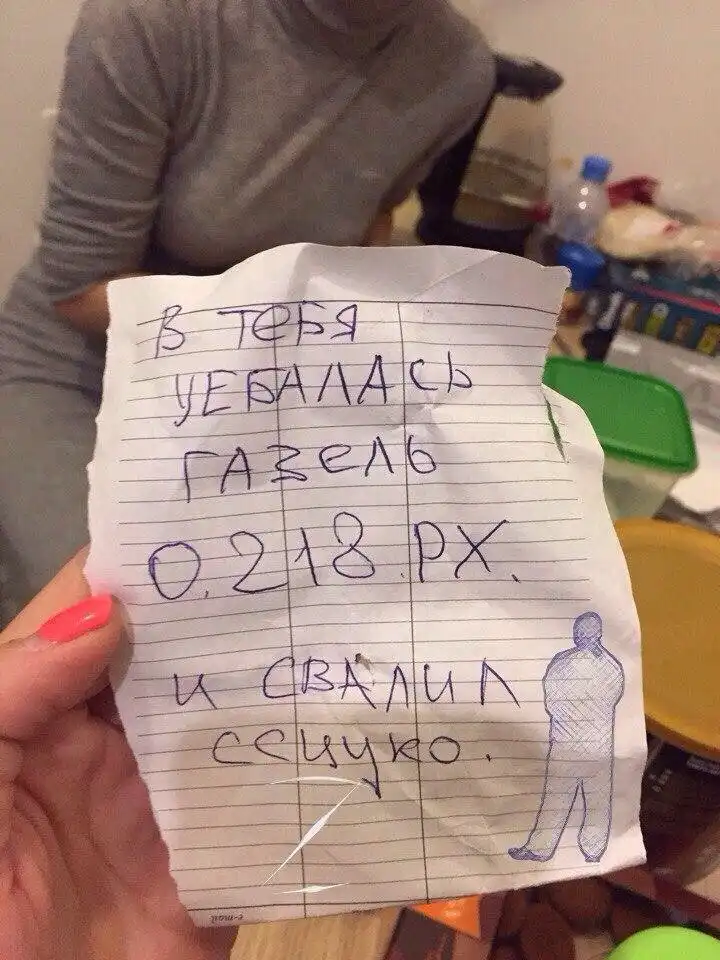 В ТЕБЯ
УЕБАЛАСЬ
ГАЗЕЛЬ
О.218.РХ.
И СВАЛИЛ
ССЦУКО.
e-mail